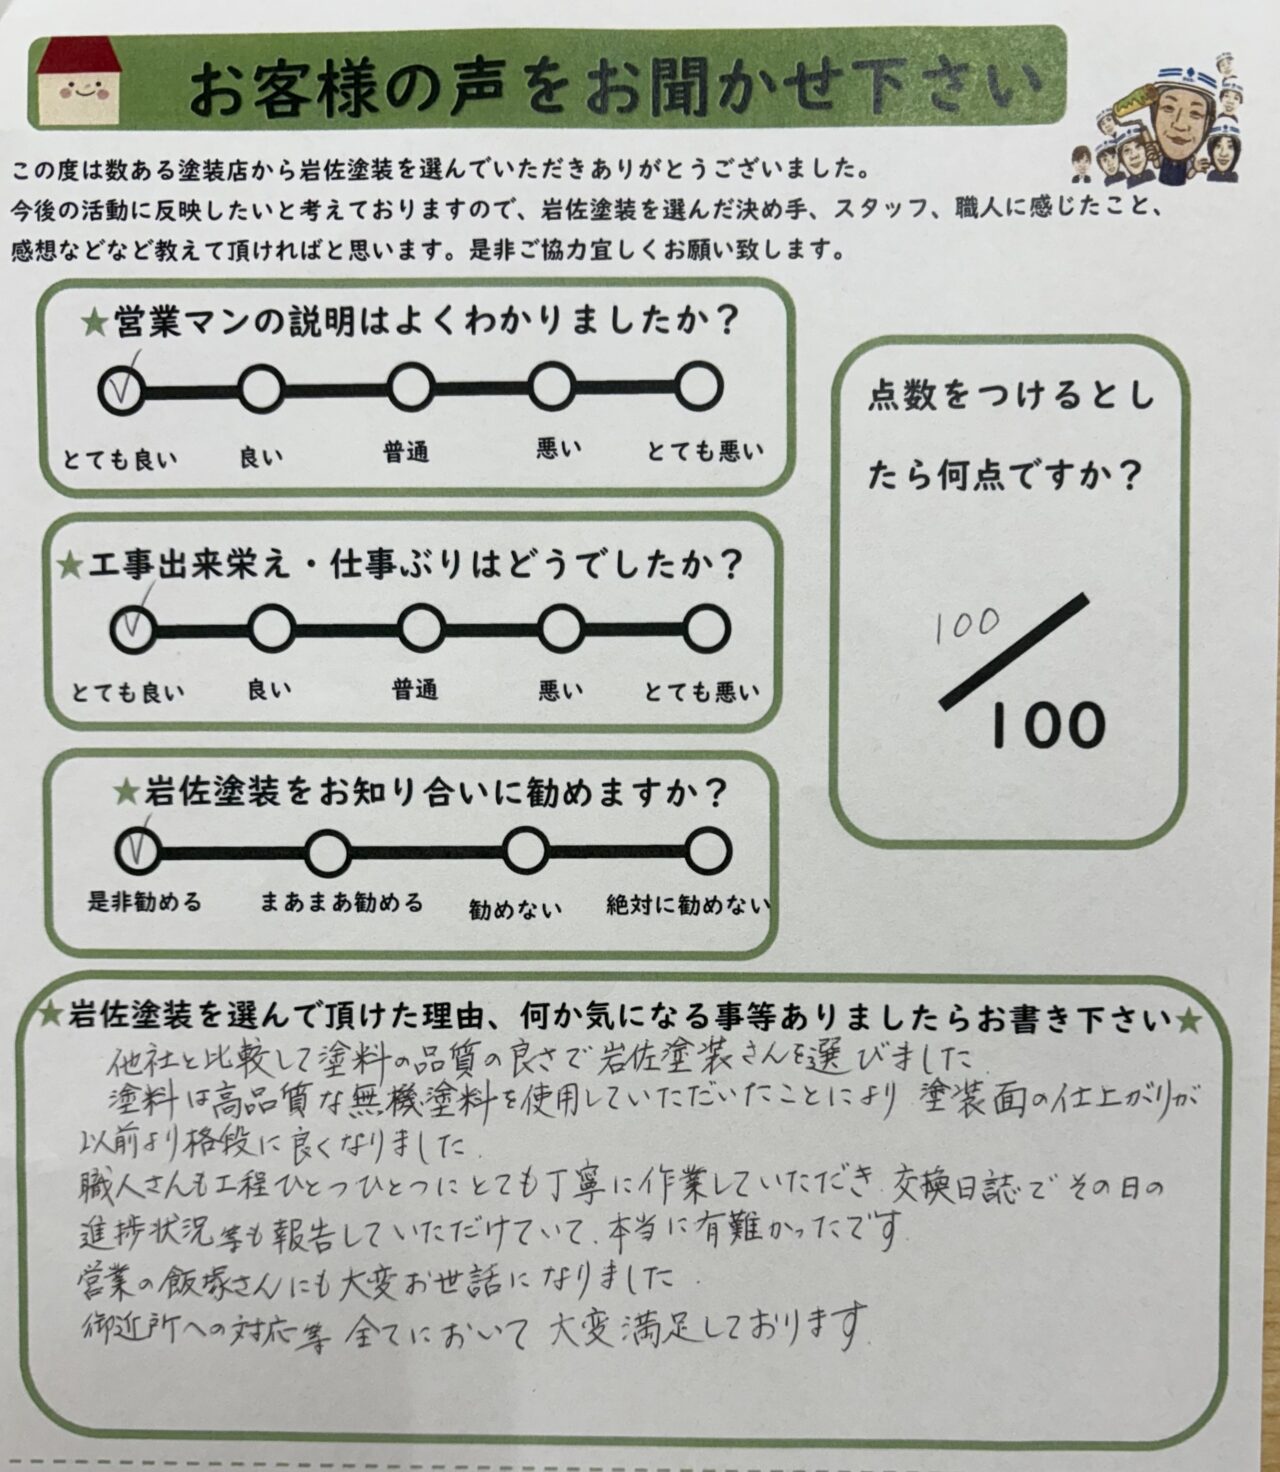 お客様の声をお聞かせ下さい
この度は数ある塗装店から岩佐塗装を選んでいただきありがとうございました。
今後の活動に反映したいと考えておりますので、岩佐塗装を選んだ決め手、スタッフ、職人に感じたこと、
感想などなど教えて頂ければと思います。是非ご協力宜しくお願い致します。
★営業マンの説明はよくわかりましたか？
とても良い 良い 普通 悪い とても悪い
★工事出来栄え・仕事ぶりはどうでしたか？
とても良い 良い 普通 悪い とても悪い
★岩佐塗装をお知り合いに勧めますか？
是非勧める まあまあ勧める 勧めない 絶対に勧めない
点数をつけるとし
たら何点ですか？
100
100
★岩佐塗装を選んで頂けた理由、何か気になる事等ありましたらお書き下さい★
他社と比較して塗料の品質の良さで岩佐塗装さんを選びました.
塗料は高品質な無機塗料を使用していただいたことにより 塗装面の仕上がりが
以前より格段に良くなりました.
職人さんも工程ひとつひとつにとても丁寧に作業していただき、交換日誌でその日の
進捗状況等も報告していただけていて、本当に有難かったです.
営業の飯塚さんにも大変お世話になりました.
御近所への対応等 全てにおいて 大変満足しております.